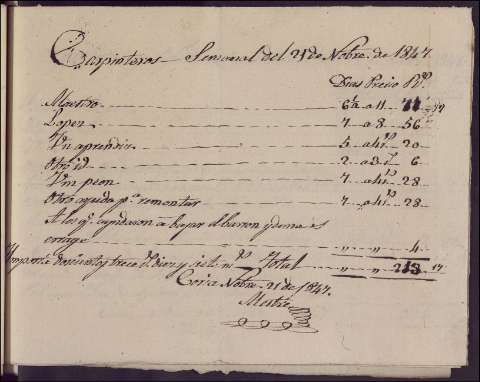 Carpinteros Semanal del 21 de Nobre. de 1847
Dias Precio Rs.
Maestro 6½ a 11 71 17
Lopez 7 a 8 56
Un aprendiz 5 a 4 rs 20
Otro id 2 a 3 id 6
Un peon 7 a 4 rs 28
Otro ayuda pa. remontar 7 a 4 rs 28
A los qe. ayudaron a bajar el baron y demas
" " 4
Importa doscientos trece rs. diez y siete ms. Total " " 213 17
Coria Nobre. 21 de 1847.